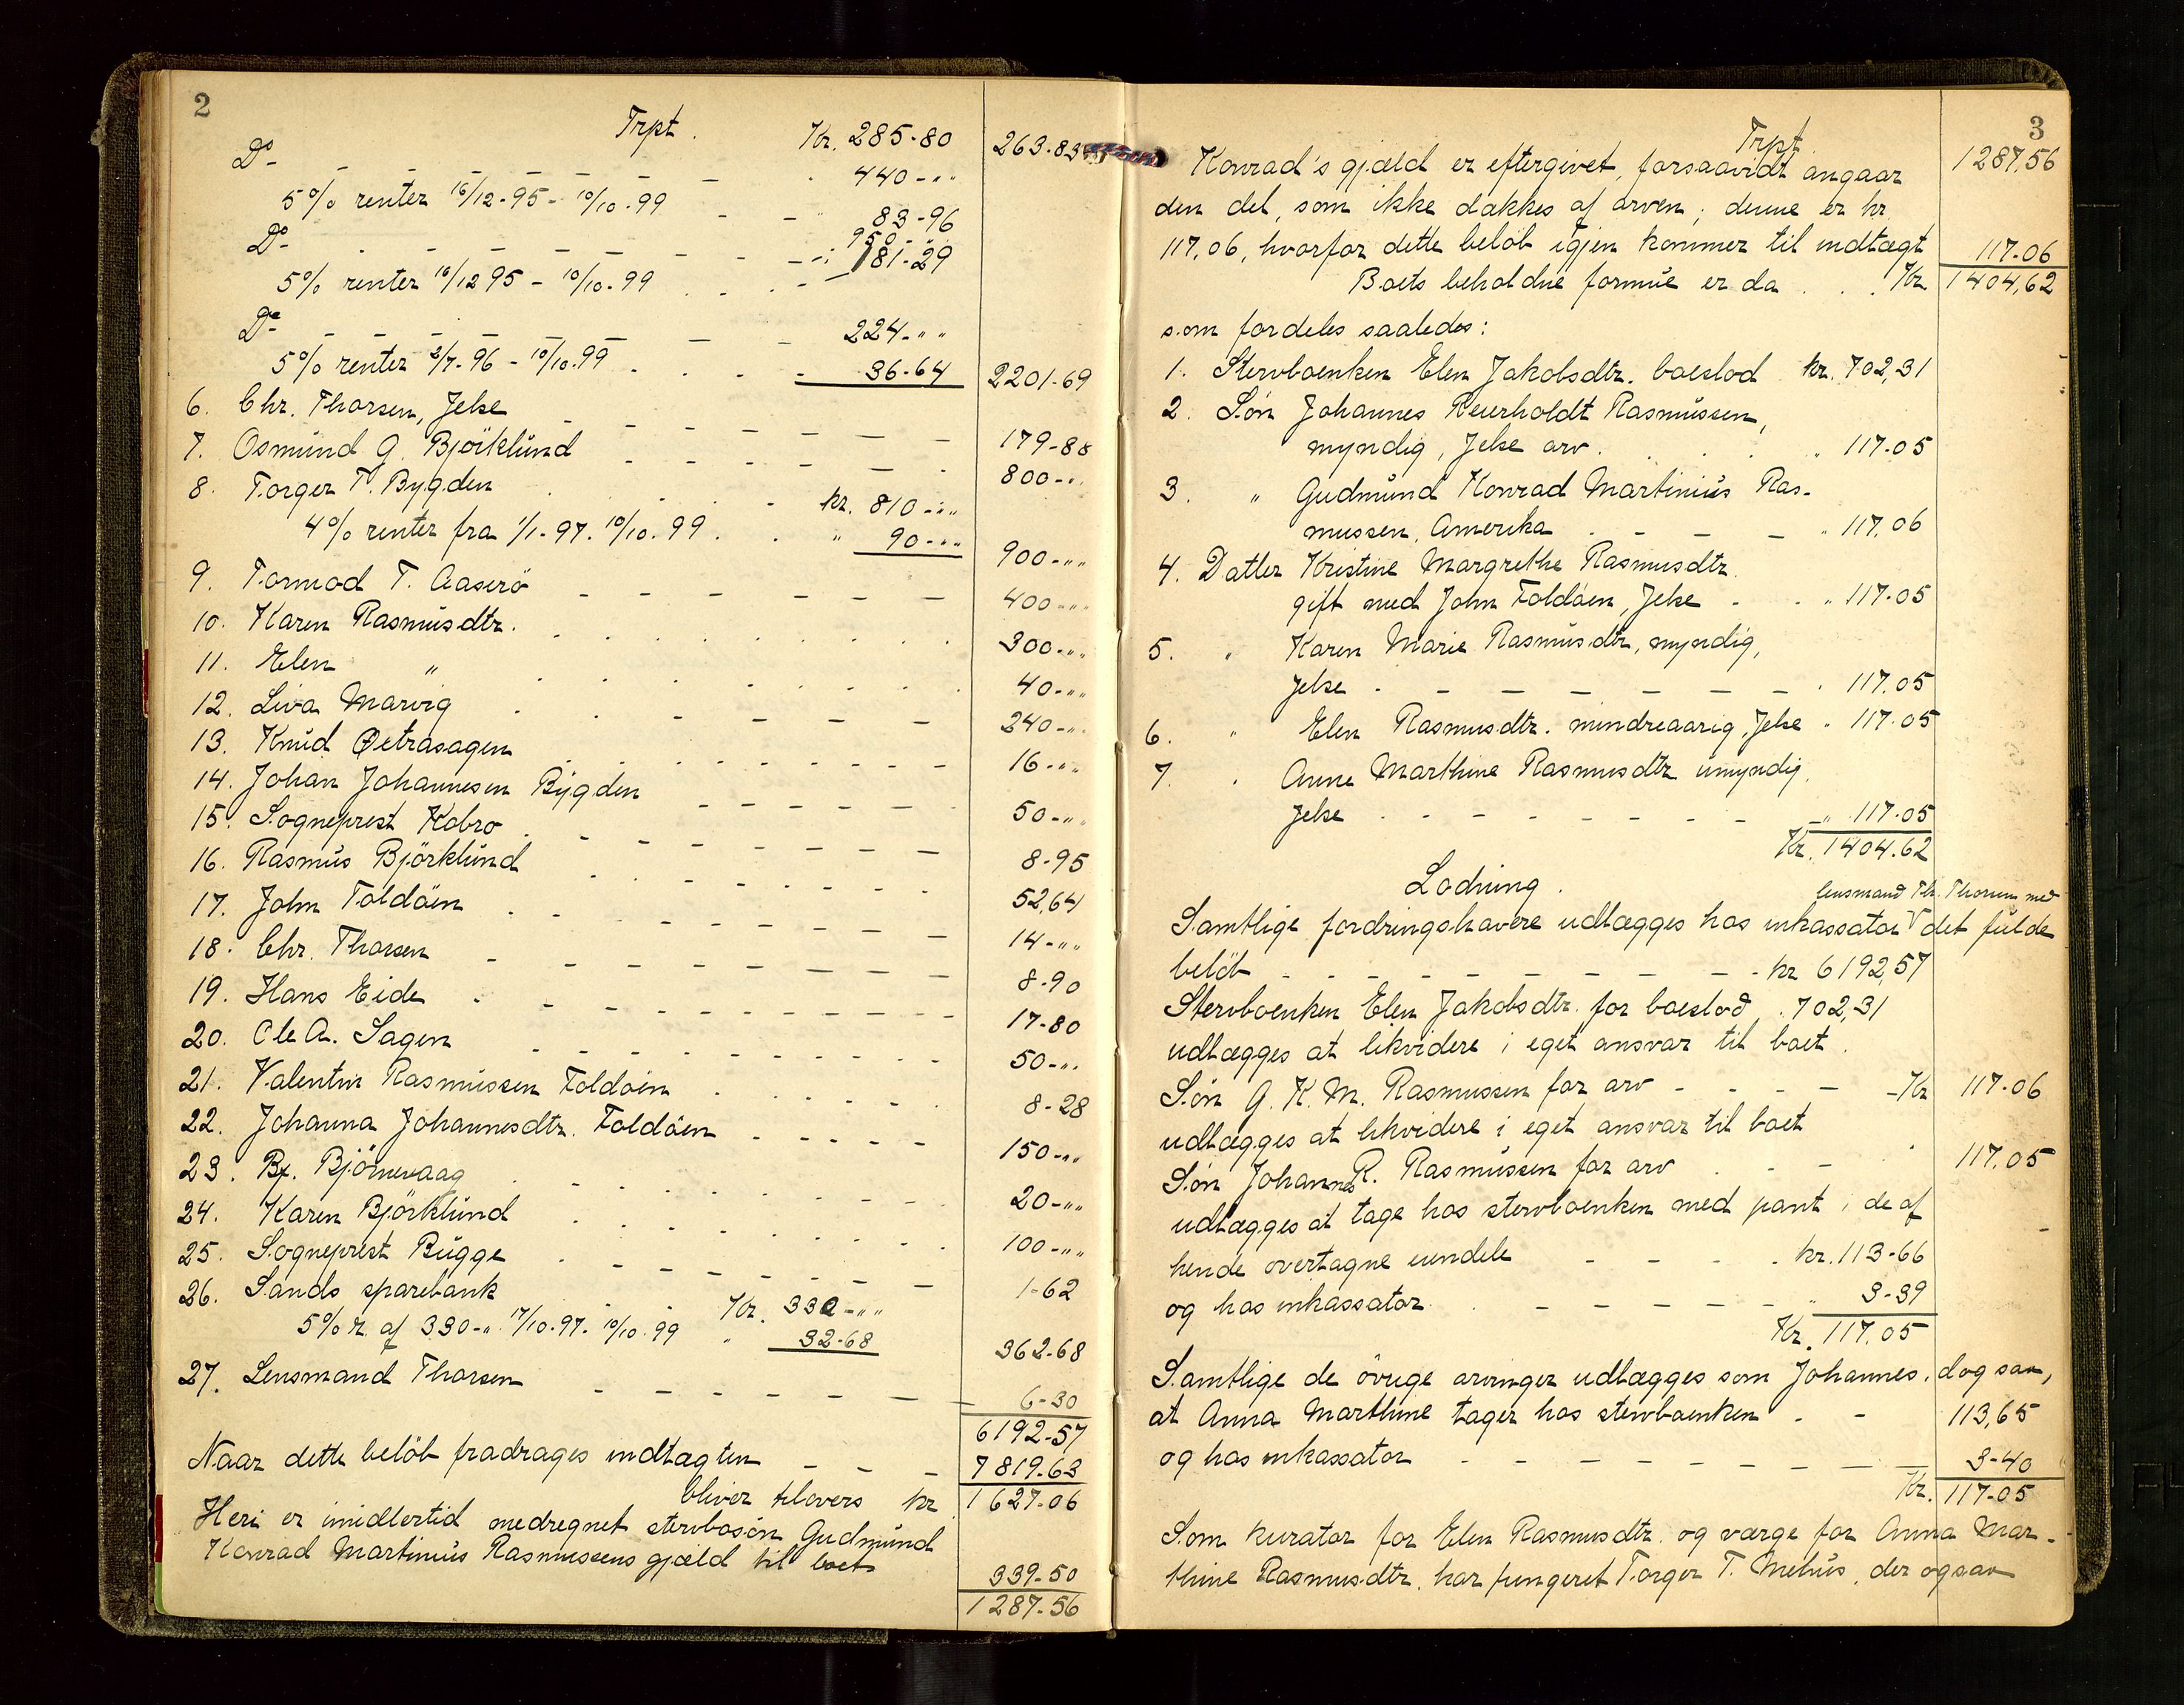 2
Trpt. Kr. 285-80 263-83
Do - - - - - - - . 440-"
5% renter 16/12-95- 10/10-99 - - " 83-96
Do - - - - - - - 950-"
5% renter 16/12 95 - 10/10-99 . . . 181-29
Do - - - - - - 224-"
5% renter 2/7-96 - 10/10-99 . . . 36-64 2201-69
6. Chr. Thorsen, Jelse - - - - - - 179-88
7. Osmund G. Björklund - - - - - - 800-"
8. Torger T. Bygden . . . - kr. 810-"
4% renter fra 1/1-97. 10/10-99 . . " 90-" 900-"
9. Tormod T. Aaserö - - - - - - 400-"
10. Karen Rasmusdtr. . . . . . . 300-"
11. Elen " . . . . . . 40-"
12. Liva Marvig . . . - - - 240-"
13. Knud Øetrasagen . . - - - - 16-"
14. Johan Johannesen Bygden - - - - 50-"
15. Sogneprest Kobro . - - - - - - 8-95
16. Rasmus Björklund . - - - - - 52,64
17. John Foldöen . - - - - - - 14-"
18. Chr. Thorsen - - - - - - - 8-90
19. Hans Eide - - - - - - - 17-80
20. Ole A. Sagen - - - - - - - 50-"
21. Valentin Rasmussen Foldöen . . . . 8-28
22. Johanna Johannesdtr. Foldöen . - - - - 150-"
23. Bx. Björnevaag . . . - - - - 20-"
24. Karen Björklund . . . . . . 100-"
25. Sogneprest Bugge . - - - - - - 1-62
26. Sands sparebank . . Kr. 330-"
5% r. af 330-" 17/10-97. 10/10-99 " 32-68 362-68
27. Lensmand Thorsen - - - - - - 6-30
6192-57
Naar dette belöb fradrages indtægten - - - 7819-63
bliver tilovers kr 1627-06
Heri er imidlertid medregnet stervbosön Gudmund
Konrad Martinius Rasmussens gjæld til boet 339-50
1287-56
3
Trpt. 1287,56
Konrad's gjæld er eftergivet, forsaavidt angaar
den del, som ikke dækkes af arven; denne er kr
117,06, hvorfor dette belöb igjen kommer til indtægt 117-06
Boets beholdne formue er da . . . Kr. 1404,62
som fordeles saaledes:
1. Stervboenken Elen Jakobsdtr. boeslod kr. 702,31
2. Søn Johannes Reierholdt Rasmussen,
myndig, Jelse arv . . . . " 117-05
3. " Gudmund Konrad Martinius Ras-
mussen, Amerika . - - - " 117,06
4. Datter Kristine Margrethe Rasmusdtr.
gift med John Foldöen, Jelse - . " 117-05
5. " Karen Marie Rasmusdtr, myndig,
Jelse - - - - - - - . 117,05
6. " Elen Rasmusdtr. mindreaarig, Jelse " 117-05
7. " Anne Marthine Rasmusdtr umyndig,
Jelse - - - - - - - - " 117-05
Kr. 1404.62
Lodning.
lensmand Th. Thorsen med
Samtlige fordringshavere udlægges hos inkassator V det fulde
belöb - - - - - - - - - kr 6192,57
Stervboenken Elen Jakobsdtr. for boeslod . 702,31
udlægges at likvidere i eget ansvar til boet .
Søn G. K. M. Rasmussen for arv - - - - - Kr 117-06
udlægges at likvidere i eget ansvar til boet
Søn Johannes R. Rasmussen for arv . - - . 117,05
udlægges at tage hos stervboenken med pant i de af
hende overtagne eiendele - - . . kr. 113-66
og hos inkassator . - - - - - - " 3-39
Kr. 117,05
Samtlige de övrige arvinger udlægges som Johannes, dog saa,
at Anna Marthine tager hos stervboenken - - 113,65
og hos inkassator - - - - - - - - 3-40
Kr. 117-05
Som kurator for Elen Rasmusdtr. og værge for Anna Mar-
thine Rasmusdtr. har fungeret Torger T. Mehus, der ogsaa